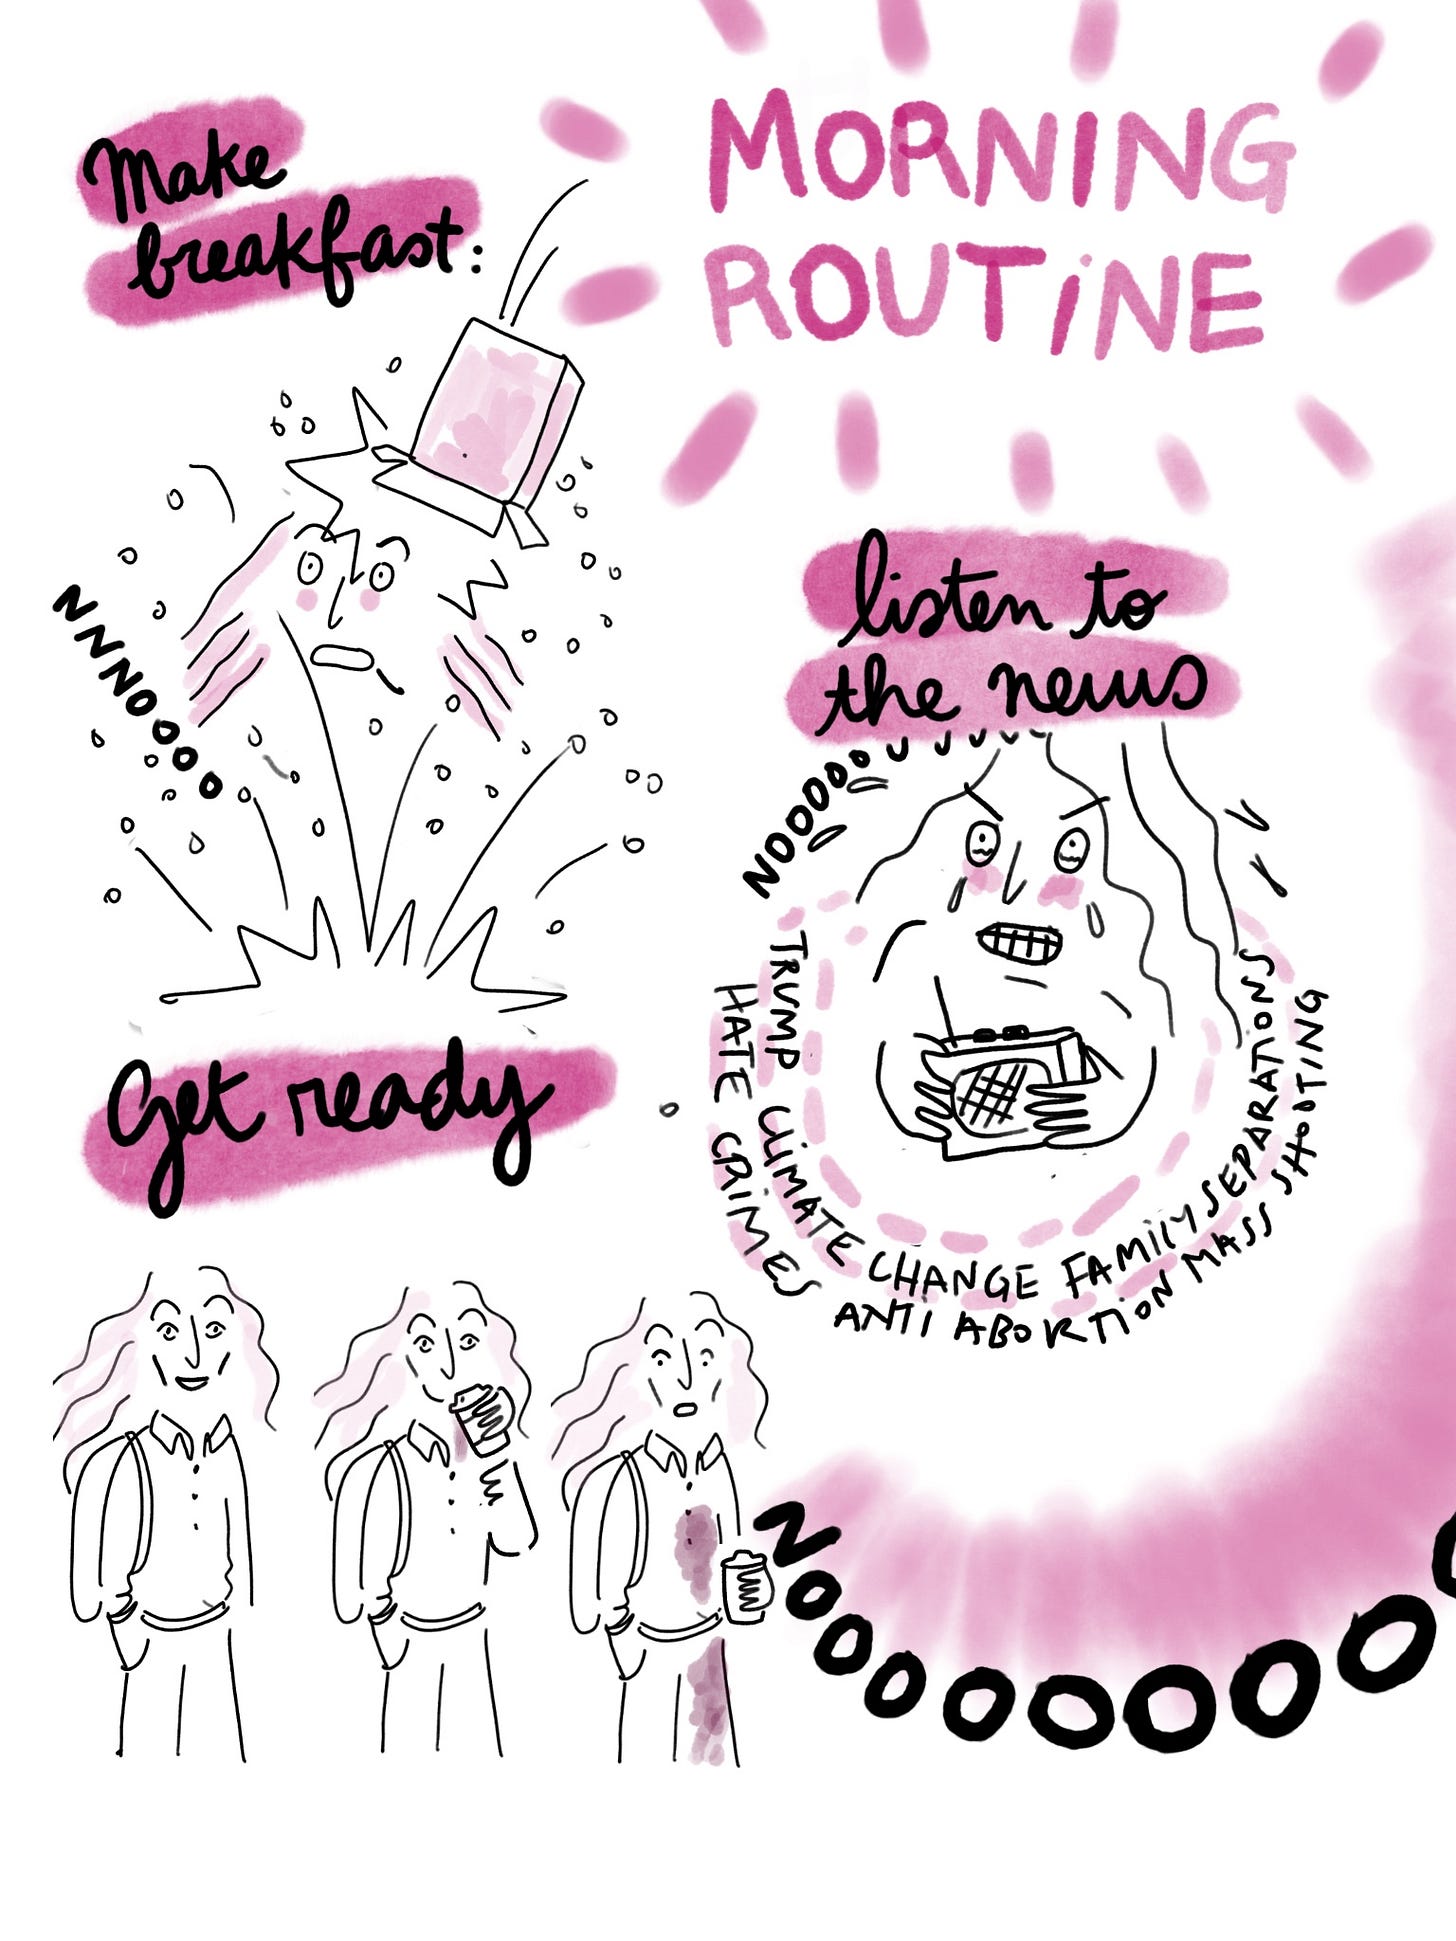 MORNING
ROUTiNE
Make
breakfast:
NNNOOOO
listen to
the news
NOOOOOUUUUUU
TRUMP CLIMATE CHANGE FAMILY SEPARATIONS
HATE CRiMES ANTi ABORTION MASS SHOOTING
Get ready
NOOOOOOOOO